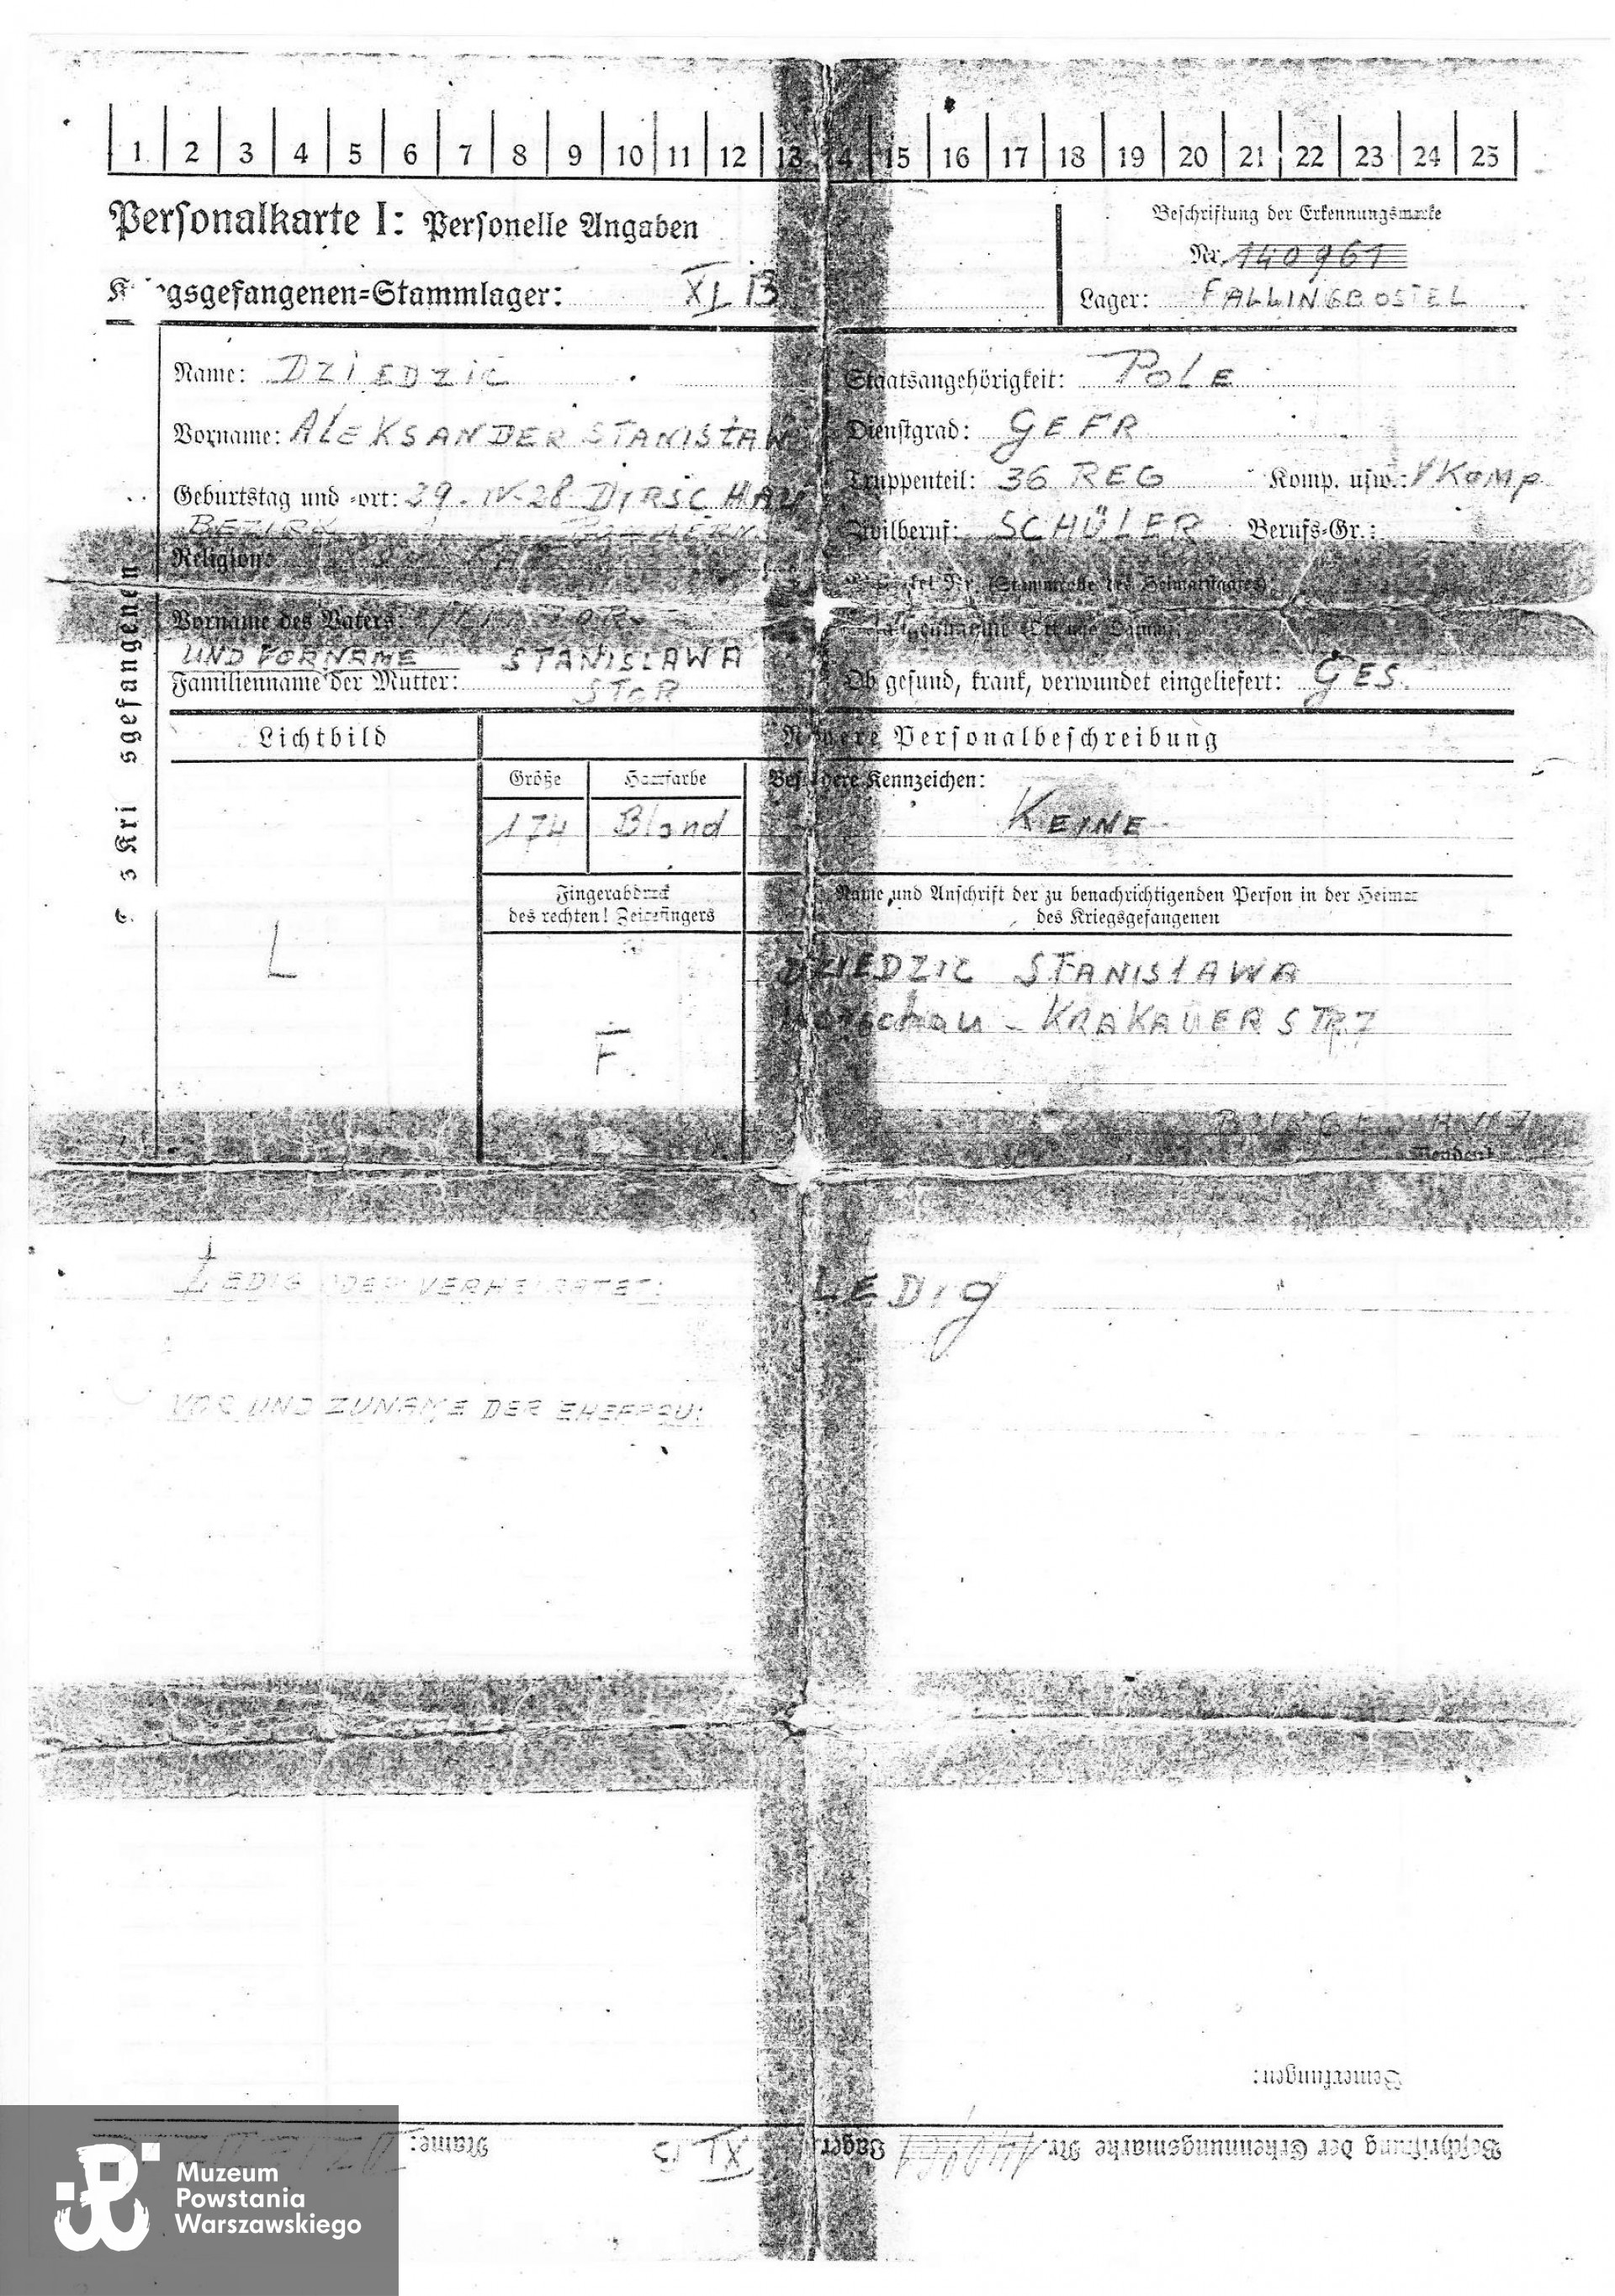 1 2 3 4 5 6 7 8 9 10 11 12 13 14 15 16 17 18 19 20 21 22 23 24 25
Personalkarte I: Personelle Angaben
Beschriftung der Erkennungsmarke
Nr. 140961
Kriegsgefangenen=Stammlager: XI B
Lager: FALLINGBOSTEL
Name: DZIEDZIC
Staatsangehörigkeit: POLE
Vorname: ALEKSANDER STANISŁAW
Dienstgrad: GEFR
Geburtstag und =ort: 29. IV. 28 DIRSCHAU
Truppenteil: 36 REG Komp. usw.: V KOMP
BEZIRK
Zivilberuf: SCHÜLER Berufs=Gr.:
Religion:
Vorname des Vaters:
UND FORNAME STANISLAWA
Familienname der Mutter: STOR
Ob gesund, krank, verwundet eingeliefert: GES.
des Kriegsgefangenen
Lichtbild
Nähere Personalbeschreibung
Größe Haarfarbe Besondere Kennzeichen:
174 Blond KEINE
Fingerabdruck
des rechten! Zeigefingers
Name und Anschrift der zu benachrichtigenden Person in der Heimat
des Kriegsgefangenen
L
DZIEDZIC STANISŁAWA
Warschau - KRAKAUER STR 7
F.
LEDIG ODER VERHEIRATET: LEDIG
VOR UND ZUNAME DER EHEFRAU:
Bemerkungen:
Beschriftung der Erkennungsmarke Nr. 140961 Lager XI B Name: DZIEDZIC
Muzeum
Powstania
Warszawskiego